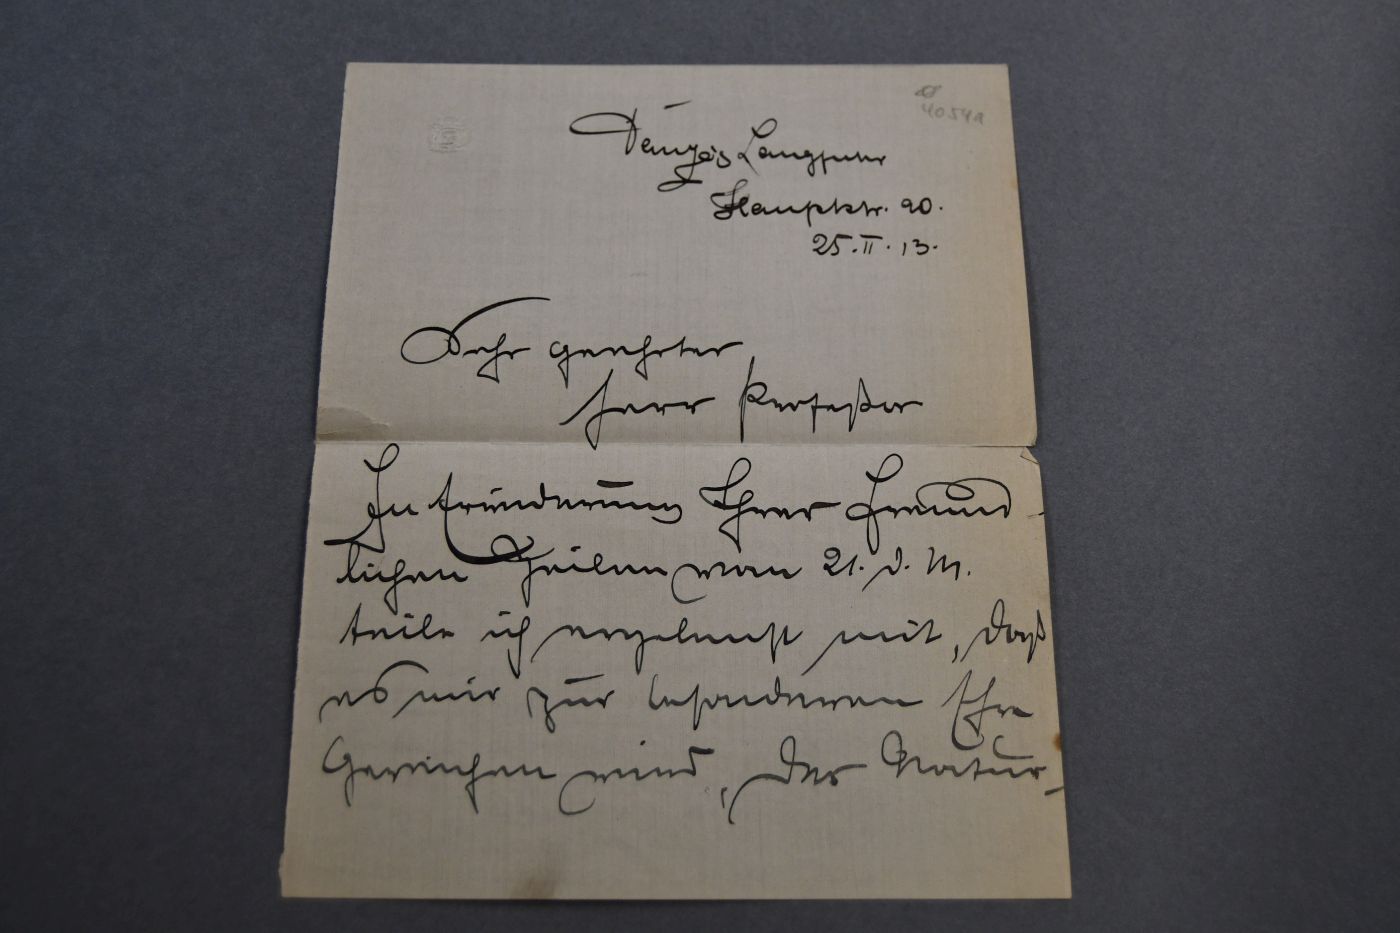 4054a
Danzig Langfuhr
Hauptstr. 90.
25.II.13.
Sehr geehrter
Herr Professor
In Erwiderung Ihrer freund-
lichen Zeilen vom 21. d. M.
teile ich ergebenst mit, daß
es mir zur besonderen Ehre
gereichen wird, der Natur-